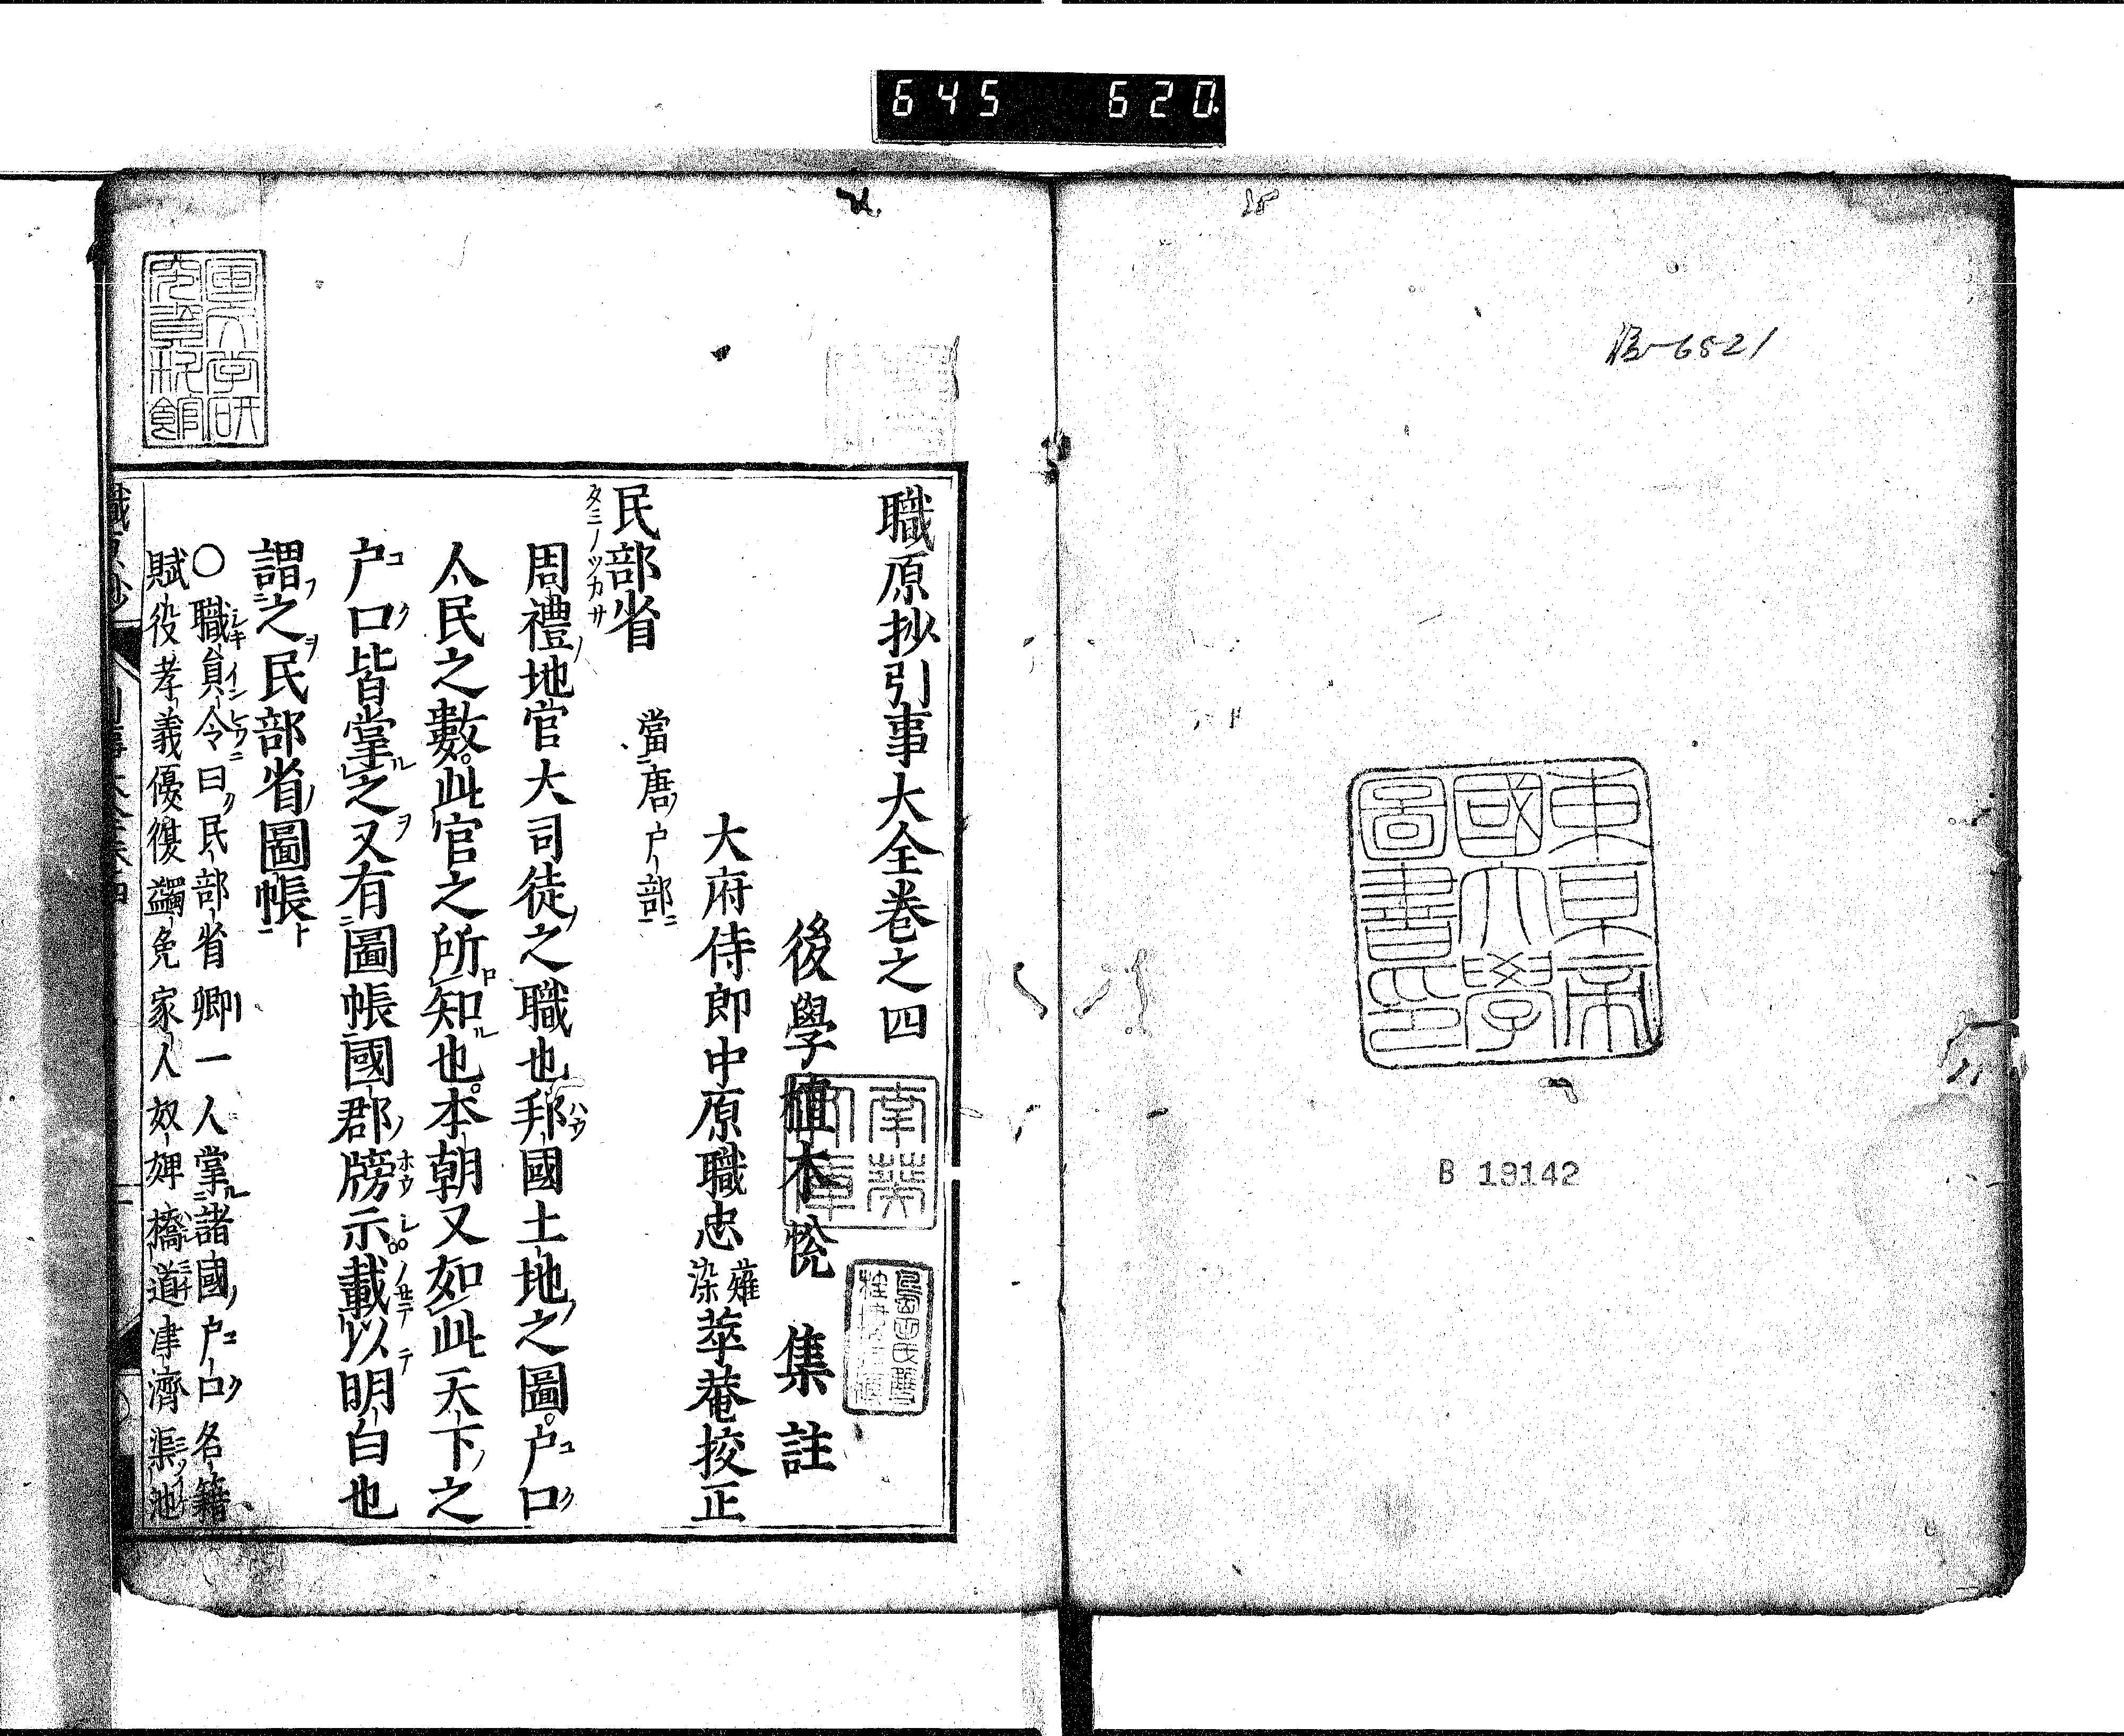 645 620.
B 19142
東京帝
國大學
圖書印
職原抄引事大全卷之四
後學植木悦 集註
大府侍郎中原職忠雍染萃菴挍正
民部省 當唐戸部
タミノツカサ
周禮地官大司徒之職也邦國土地之圖。戸口
人民之數。此官之所知也。本朝又如此天下之
戸口皆掌之又有圖帳國郡牓示載以明白也
謂之民部省圖帳
〇職員令曰民部省卿一人掌諸國戸口名籍
賦役孝義優復蠲免家人奴婢橋道津濟渠池